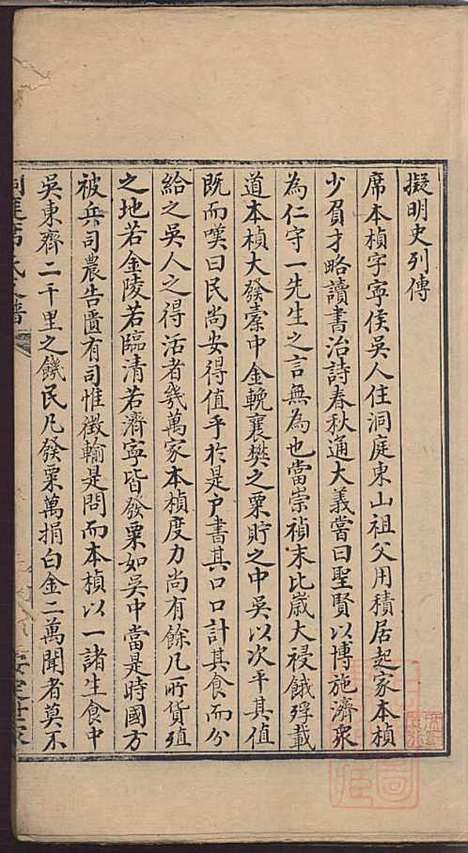 擬明史列傳
席本楨字寧侯吳人住洞庭東山祖父用積居起家本楨
少負才略讀書治詩春秋通大義嘗曰聖賢以博施濟衆
為仁守一先生之言無為也當崇禎末比歲大祲餓殍載
道本楨大發槖中金輓襄樊之粟貯之中吳以次平其值
既而嘆曰民尚安得值乎於是戶書其口口計其食而分
給之吳人之得活者幾萬家本楨度力尚有餘凡所貨殖
之地若金陵若臨清若濟寧皆發粟如吳中當是時國方
被兵司農告匱有司惟徵輸是問而本楨以一諸生食中
吳東齊二千里之饑民凡發粟萬捐白金二萬聞者莫不
洞庭席氏譜
安定世家